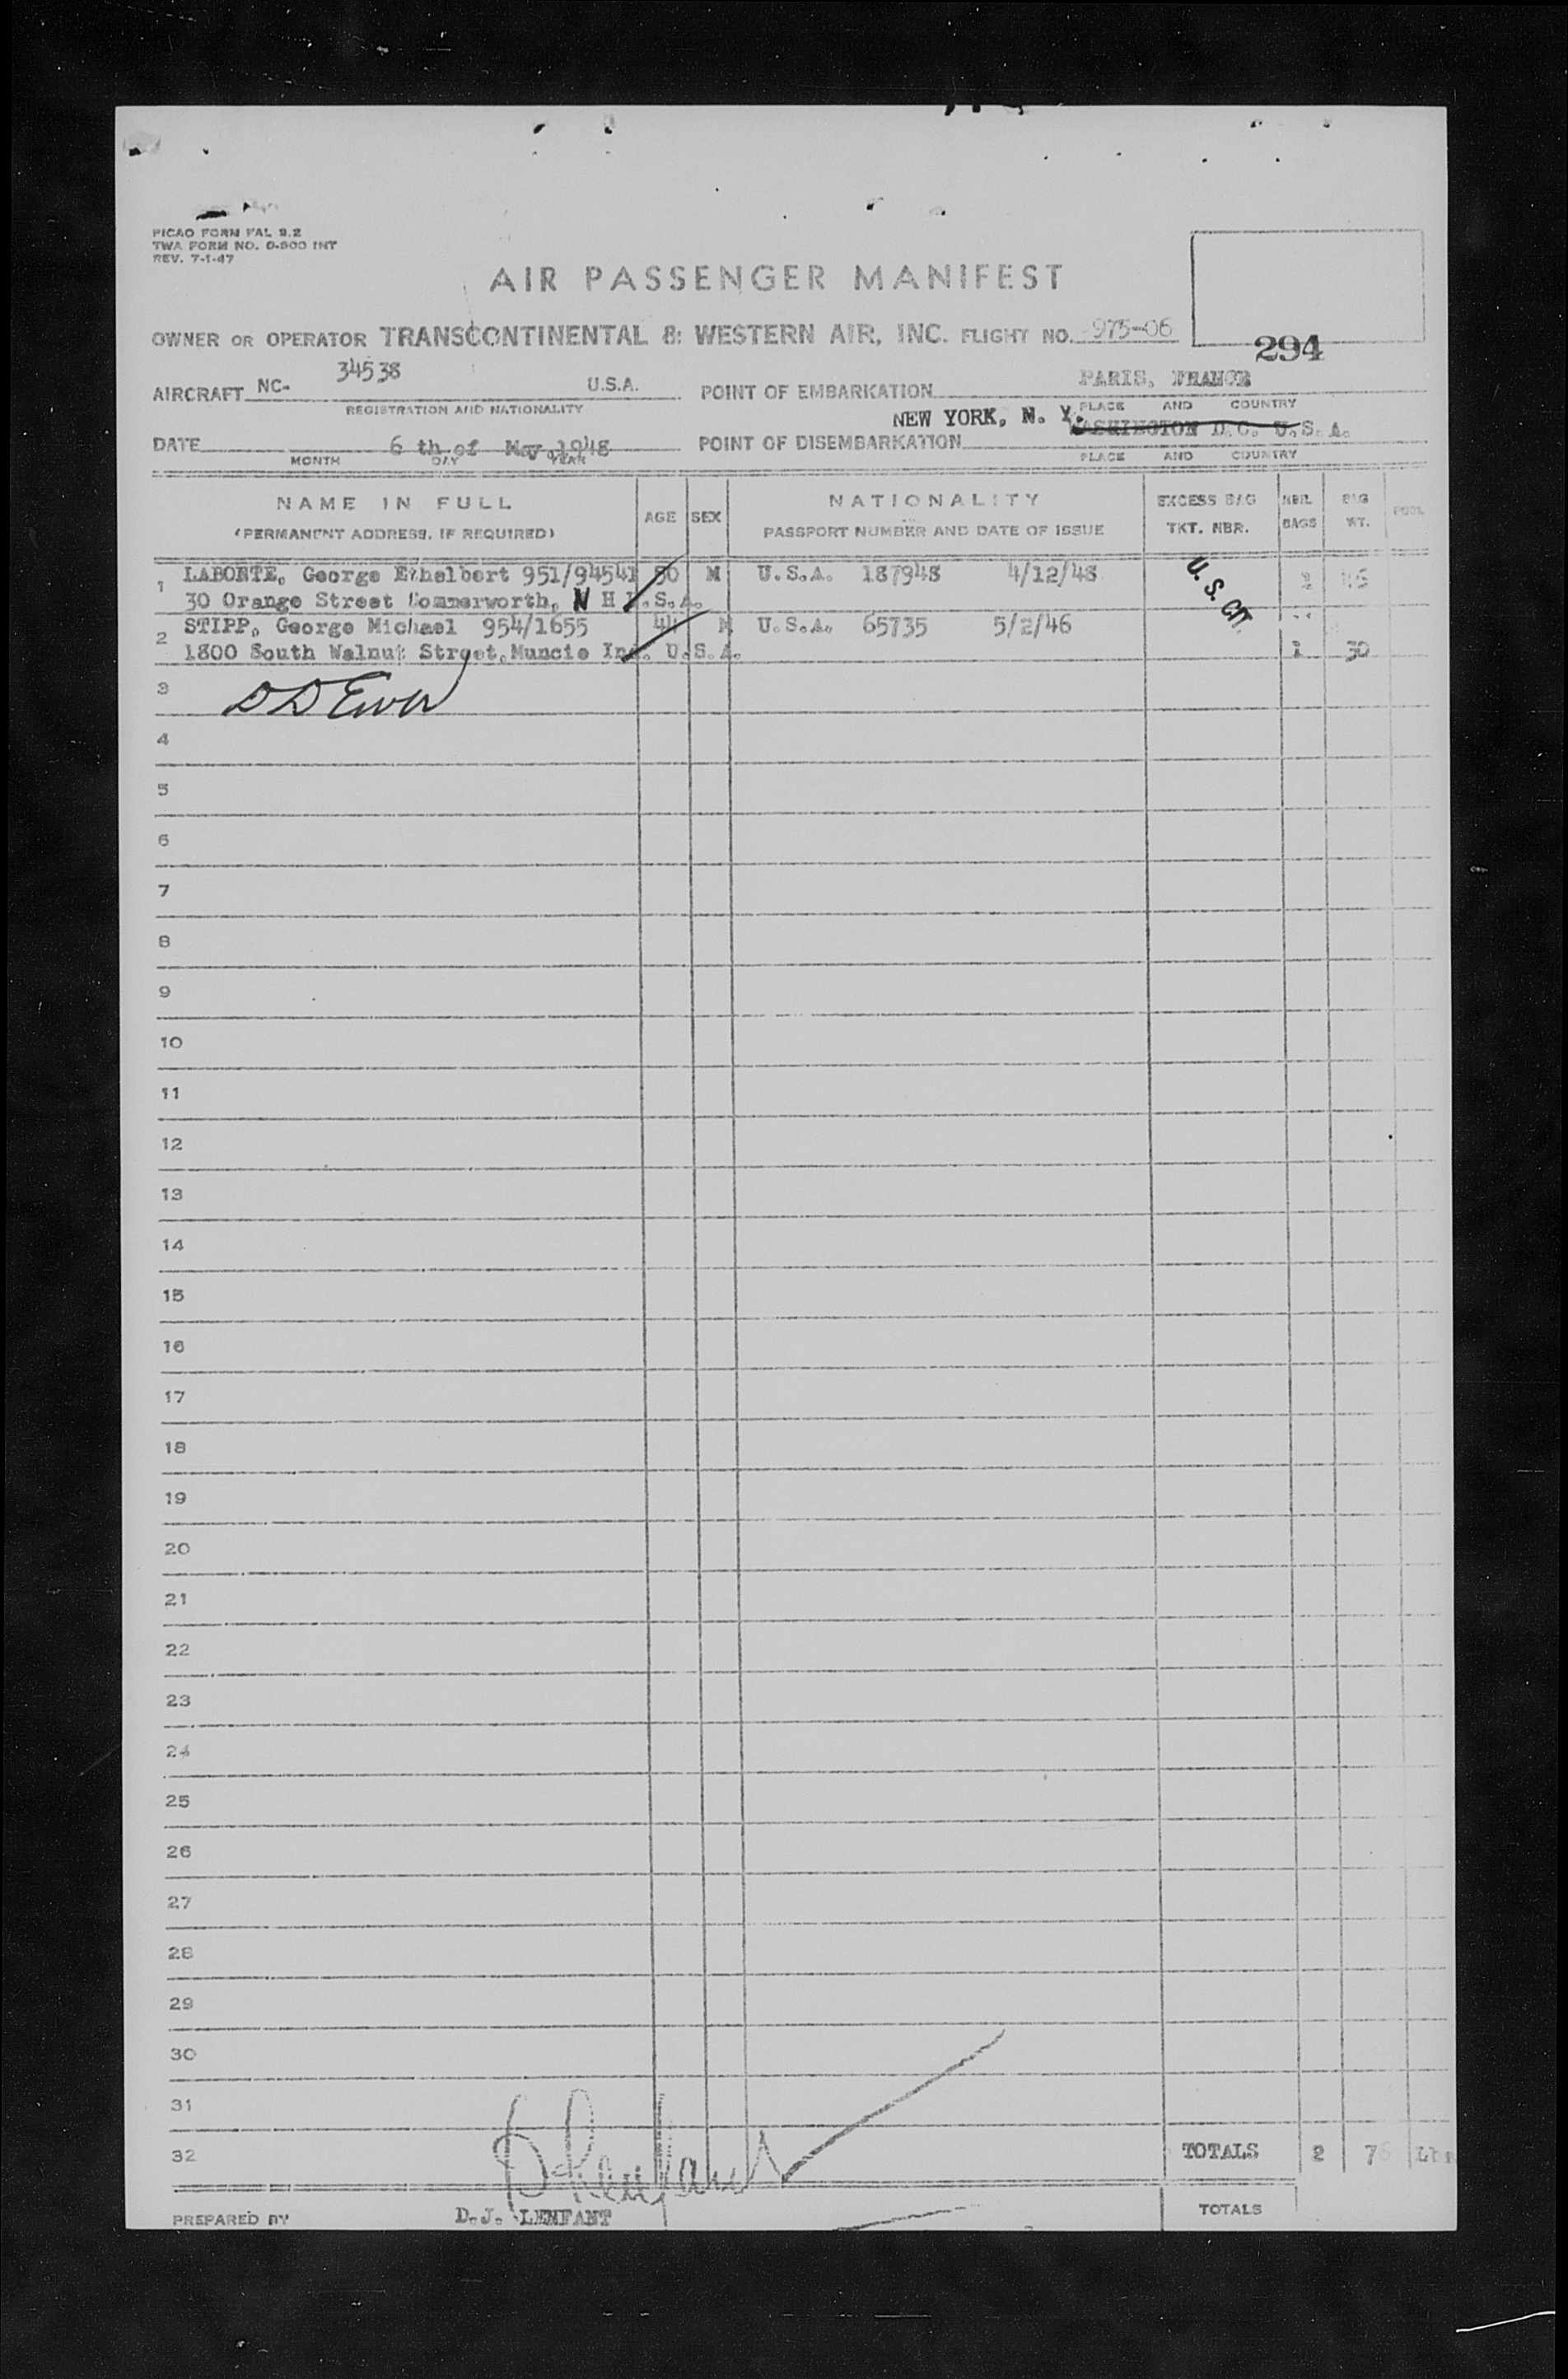 PICAO FORM FAL 9.2
TWA FORM NO. O-800 INT
REV. 7-1-47
AIR PASSENGER MANIFEST
OWNER OR OPERATOR TRANSCONTINENTAL & WESTERN AIR, INC. FLIGHT NO. 975-06
294
AIRCRAFT NC- 34538 U.S.A. POINT OF EMBARKATION PARIS, FRANCE
REGISTRATION AND NATIONALITY PLACE AND COUNTRY
NEW YORK, N. Y.
DATE 6 th of May 1948 POINT OF DISEMBARKATION WASHINGTON D.C. U.S.A.
MONTH DAY YEAR PLACE AND COUNTRY
NAME IN FULL AGE SEX NATIONALITY EXCESS BAG NBR. BAG POOL
(PERMANENT ADDRESS, IF REQUIRED) PASSPORT NUMBER AND DATE OF ISSUE TKT. NBR. BAGS WT.
1 LABONTE, George Ethelbert 951/94541 M U.S.A. 187948 4/12/48 U.S. CIT.
30 Orange Street Sommerworth, N H U.S.A.
2 STIPP, George Michael 954/1655 44 M U.S.A. 65735 5/2/46
1800 South Walnut Street, Muncie Ind. U.S.A. 1 30
3
4
5
6
7
8
9
10
11
12
13
14
15
16
17
18
19
20
21
22
23
24
25
26
27
28
29
30
31
32 TOTALS 2 76 Lbs
PREPARED BY D.J. LENFANT TOTALS